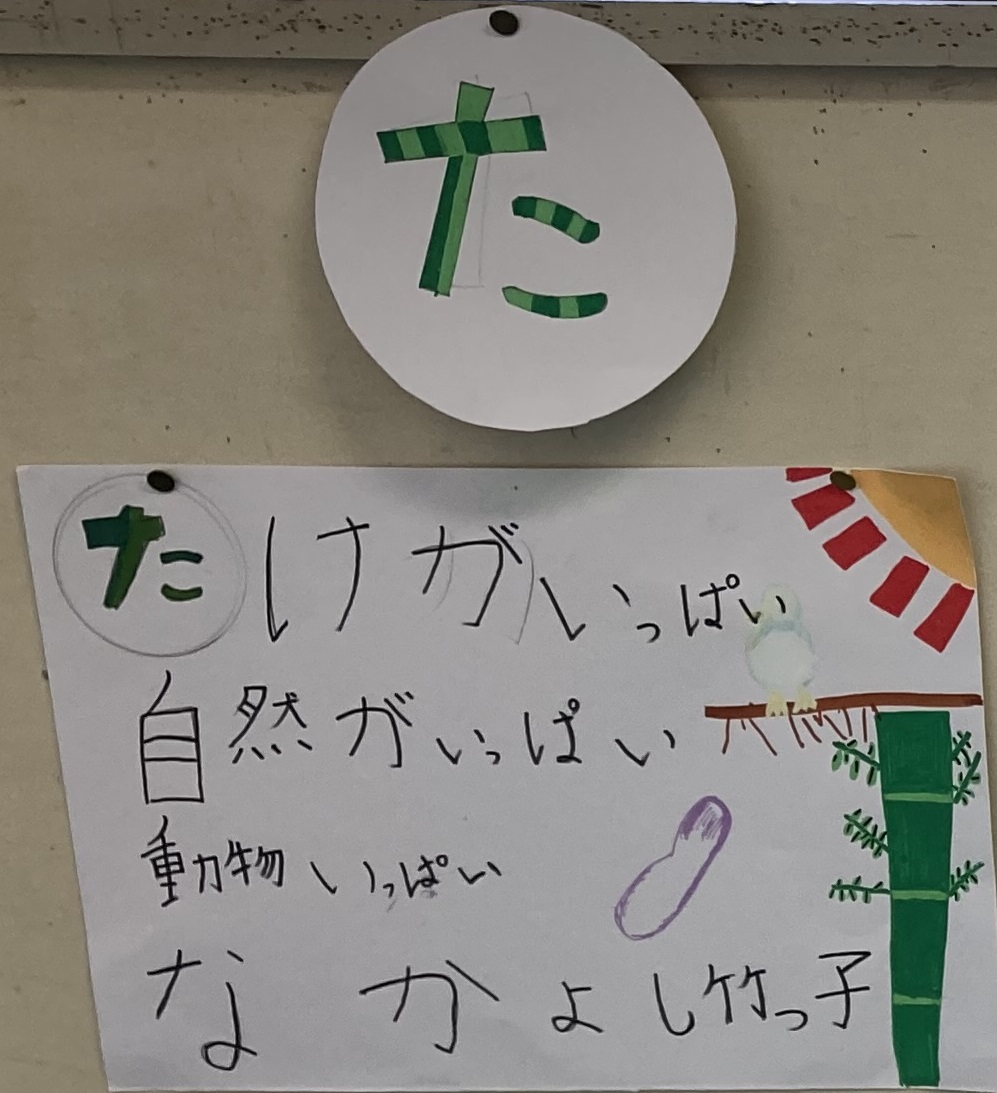 た
たけがいっぱい
自然がいっぱい
動物いっぱい
なかよし竹っ子